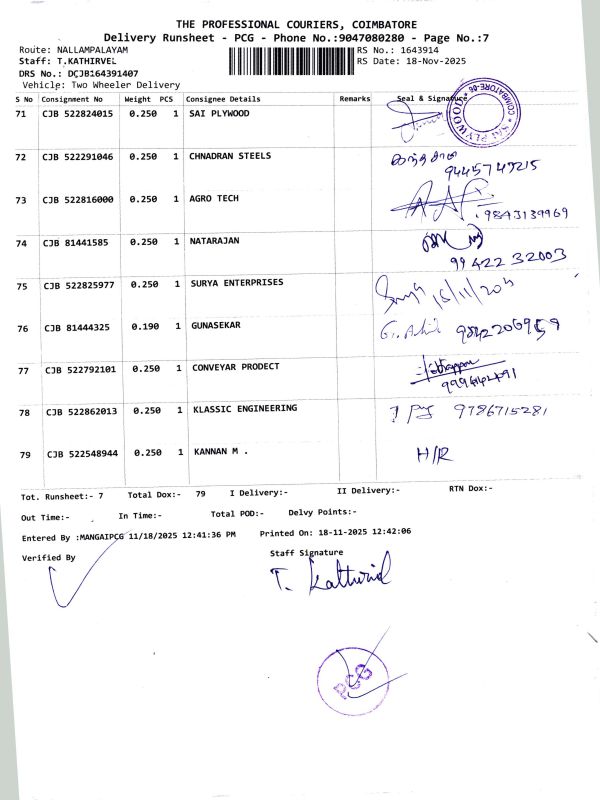 THE PROFESSIONAL COURIERS, COIMBATORE
Delivery Runsheet - PCG - Phone No.:9047080280 - Page No.:7
Route: NALLAMPALAYAM RS No.: 1643914
Staff: T.KATHIRVEL RS Date: 18-Nov-2025
DRS No.: DCJB164391407
Vehicle: Two Wheeler Delivery
S No Consignment No Weight PCS Consignee Details Remarks Seal & Signature
71 CJB 522824015 0.250 1 SAI PLYWOOD
SAI PLYWOOD COIMBATORE-06
72 CJB 522291046 0.250 1 CHNADRAN STEELS
9445749215
73 CJB 522816000 0.250 1 AGRO TECH
9843139969
74 CJB 81441585 0.250 1 NATARAJAN
99422 32003
75 CJB 522825977 0.250 1 SURYA ENTERPRISES
76 CJB 81444325 0.190 1 GUNASEKAR
77 CJB 522792101 0.250 1 CONVEYAR PRODECT
78 CJB 522862013 0.250 1 KLASSIC ENGINEERING 9786715281
79 CJB 522548944 0.250 1 KANNAN M . H/R
Tot. Runsheet:- 7 Total Dox:- 79 I Delivery:- II Delivery:- RTN Dox:-
Out Time:- In Time:- Total POD:- Delvy Points:-
Entered By :MANGAIPCG 11/18/2025 12:41:36 PM Printed On: 18-11-2025 12:42:06
Verified By Staff Signature
T. Kathirvel
PCG